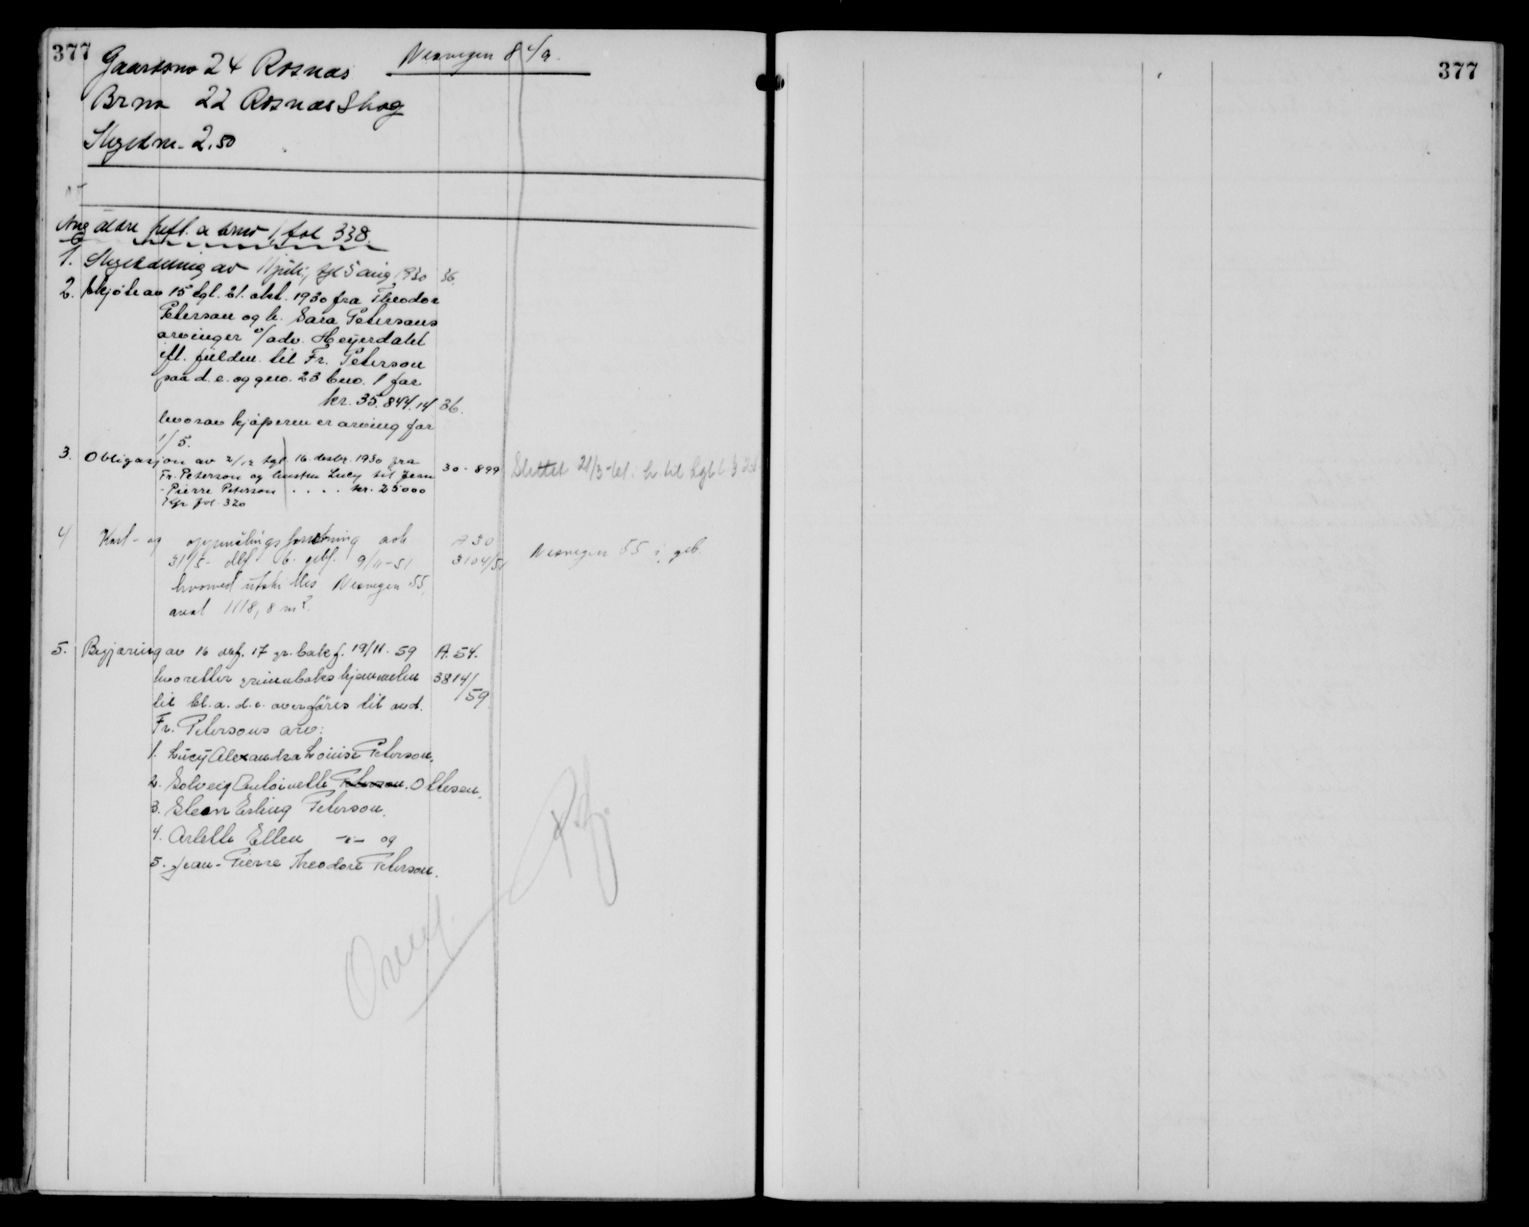 377
Gaardsno 24 Rosnæs
Nesvegen 8 4/a
Brno 22 Rosnæs Skog
Skyldm. 2,50
Ang. ældre heft. a brno 1, fol 338.
1. Skylddeling av 11 juli, tgl 5 aug 1930 36.
2. Skjøte av 15 tgl. 21. okt. 1930 fra Theodor
Peterson og h. Sara Petersons
arvinger v/adv. Heyerdahl
ifl. fuldm. til Fr. Peterson
paa d. e. og gno. 23 bno. 1 for
kr. 35.844.14 36.
hvorav kjøperen er arving for
1/5.
3. Obligasjon av 2/12 tgl 16. desbr. 1930 fra
Fr. Peterson og hustru Lucy til Jean
-Pierre Peterson . . . . kr. 25000
fol. 320
30 - 899
Slettet 21/3-61.
4 Kart- og oppmålingsforretning avh
31/5- dbf. 6. gebf. 9/11-51
hvorved utskilles Nesvegen 55,
areal 1118,8 m².
A 30
3104/51
Nesvegen 55 i gb.
5. Begjæring av 16 dbf. 17 gr. bokf. 19/11. 59
hvoretter grunnboks hjemmelen
til bl. a. d. e. overføres til avd.
Fr. Petersons arv:
A. 54.
3814/
59
1. Lucy Alexandra Louise Peterson,
2. Solveig Antoinette Peterson. Ottesen,
3. Stean Erling Peterson.
4. Arlette Ellen -"- og
5. Jean-Pierre Theodore Peterson.
Overf.
377